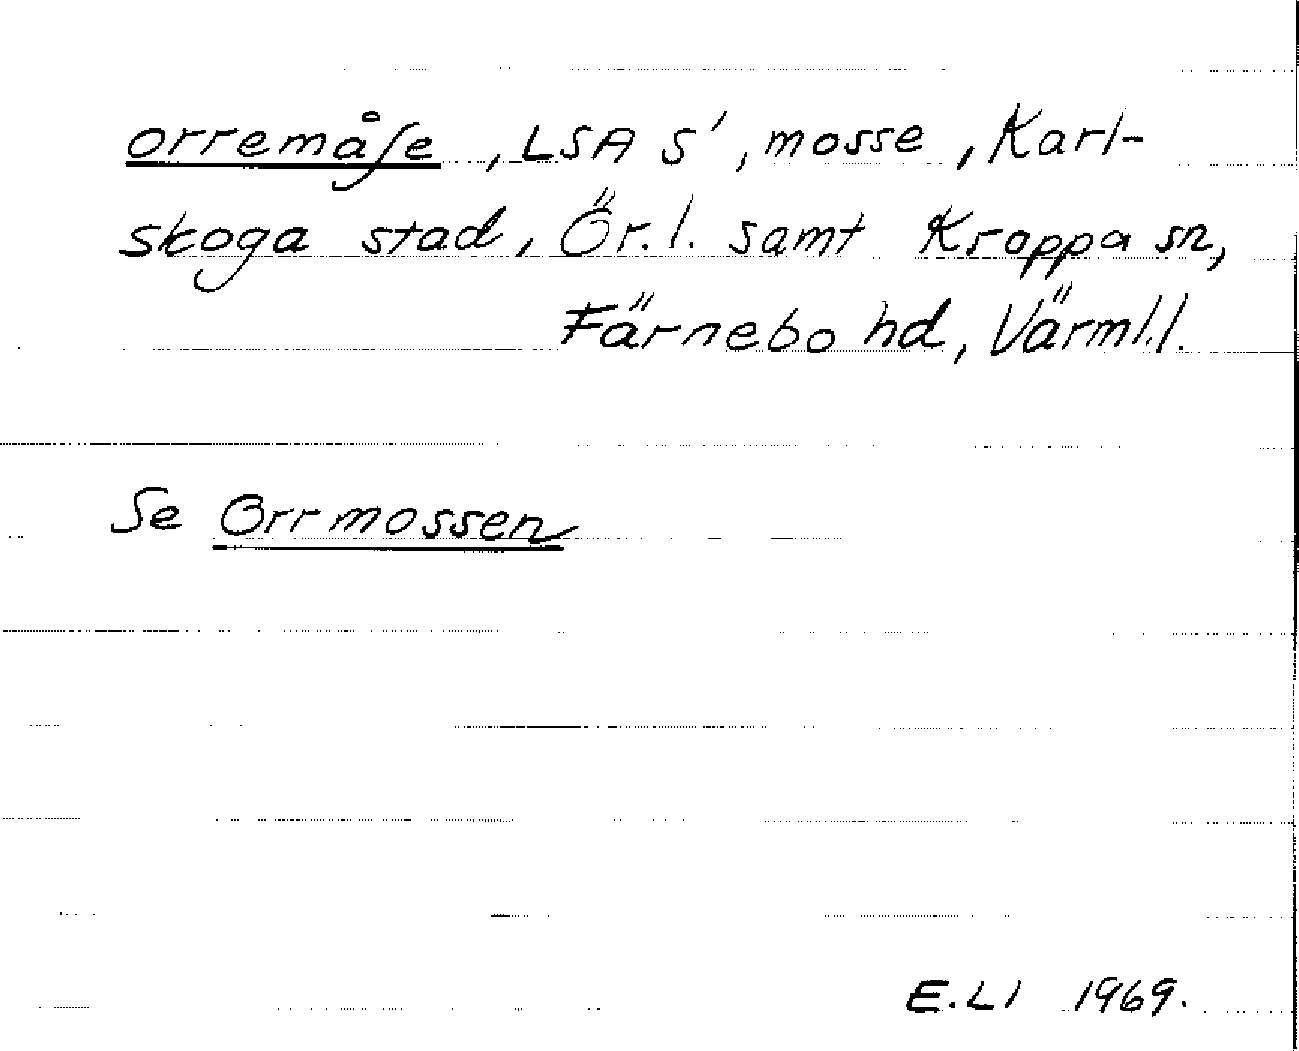 orremåſe, LSA S', mosse, Karl-
skoga stad, Ör. l. samt Kroppa sn,
Färnebo hd, Värml. l.
Se Orrmossen
E. LI 1969.